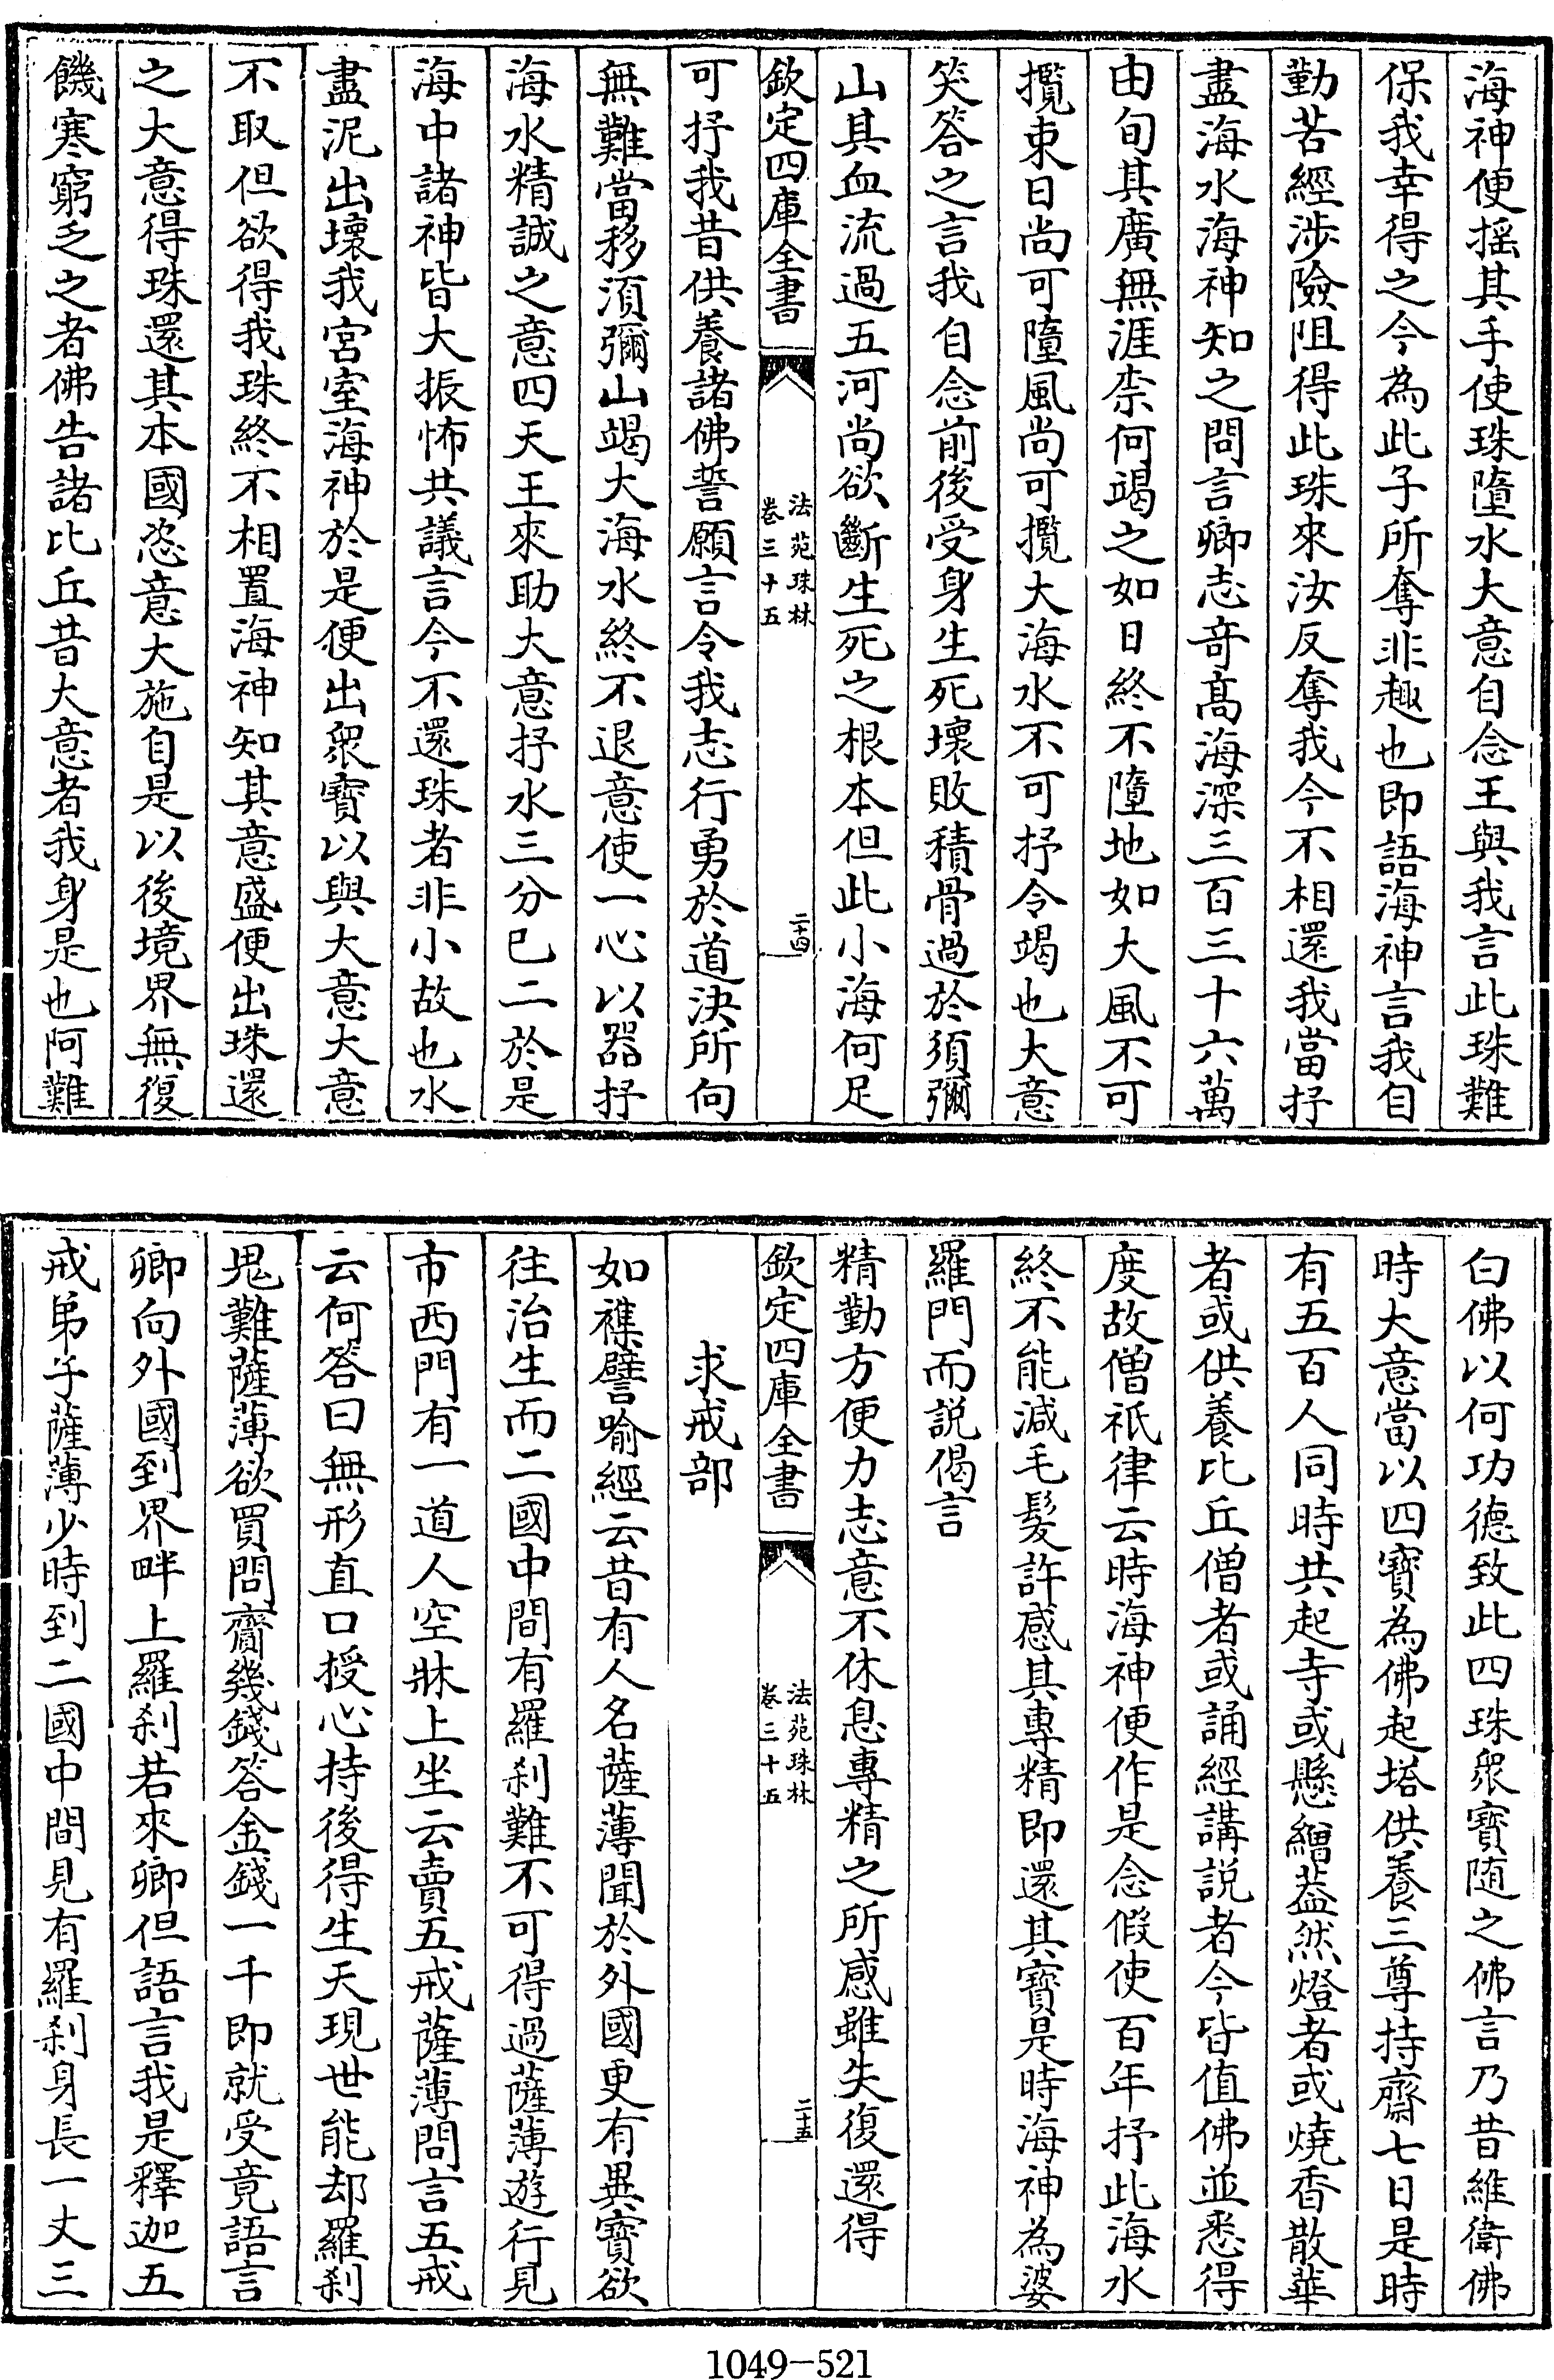 海神便揺其手使珠墮水大意自念王與我言此珠難
保我幸得之今為此子所奪非趣也即語海神言我自
勤苦經渉險阻得此珠來汝反奪我今不相還我當抒
盡海水海神知之問言卿志竒髙海深三百三十六萬
由旬其廣無涯柰何竭之如日終不墮地如大風不可
攬束日尚可墮風尚可攬大海水不可抒令竭也大意
笑答之言我自念前後受身生死壞敗積骨過於須彌
山其血流過五河尚欲斷生死之根本但此小海何足
欽定四庫全書
法苑珠林
卷三十五
二十四
可抒我昔供養諸佛誓願言令我志行勇於道決所向
無難當移須彌山竭大海水終不退意使一心以器抒
海水精誠之意四天王來助大意抒水三分已二於是
海中諸神皆大振怖共議言今不還珠者非小故也水
盡泥出壞我宮室海神於是便出衆寶以與大意大意
不取但欲得我珠終不相置海神知其意盛便出珠還
之大意得珠還其本國恣意大施自是以後境界無復
饑寒窮乏之者佛告諸比丘昔大意者我身是也阿難
白佛以何功德致此四珠衆寶随之佛言乃昔維衛佛
時大意當以四寶為佛起塔供養三尊持齋七日是時
有五百人同時共起寺或懸繒葢然燈者或燒香散華
者或供養比丘僧者或誦經講説者今皆值佛並悉得
度故僧祇律云時海神便作是念假使百年抒此海水
終不能減毛髮許感其專精即還其寶是時海神為婆
羅門而説偈言
精勤方便力志意不休息專精之所感雖失復還得
欽定四庫全書
法苑珠林
卷三十五
二十五
求戒部
如襍譬喻經云昔有人名薩薄聞於外國更有異寶欲
往治生而二國中間有羅刹難不可得過薩薄遊行見
市西門有一道人空牀上坐云賣五戒薩薄問言五戒
云何答曰無形直口授心持後得生天現世能却羅刹
鬼難薩薄欲買問齎幾錢答金錢一千即就受竟語言
卿向外國到界畔上羅刹若來卿但語言我是釋迦五
戒弟子薩薄少時到二國中間見有羅刹身長一丈三
1049-521